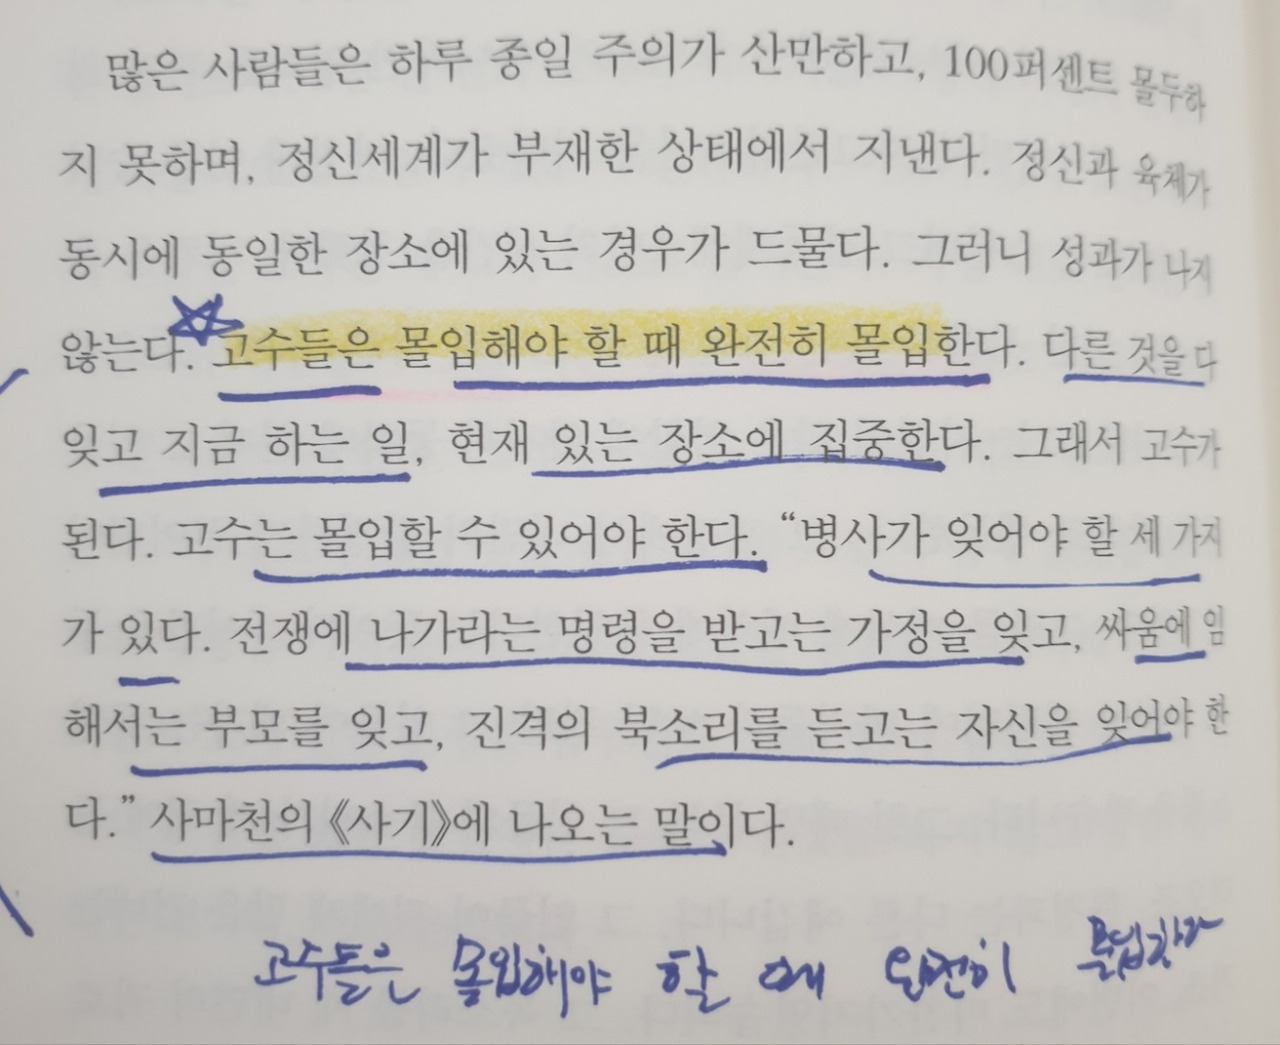 많은 사람들은 하루 종일 주의가 산만하고, 100퍼센트 몰두하
지 못하며, 정신세계가 부재한 상태에서 지낸다. 정신과 육체가
동시에 동일한 장소에 있는 경우가 드물다. 그러니 성과가 나지
않는다. 고수들은 몰입해야 할 때 완전히 몰입한다. 다른 것을 다
잊고 지금 하는 일, 현재 있는 장소에 집중한다. 그래서 고수가
된다. 고수는 몰입할 수 있어야 한다. “병사가 잊어야 할 세 가지
가 있다. 전쟁에 나가라는 명령을 받고는 가정을 잊고, 싸움에 임
해서는 부모를 잊고, 진격의 북소리를 듣고는 자신을 잊어야 한
다.” 사마천의 《사기》에 나오는 말이다.
고수들은 몰입해야 할 때 완전히